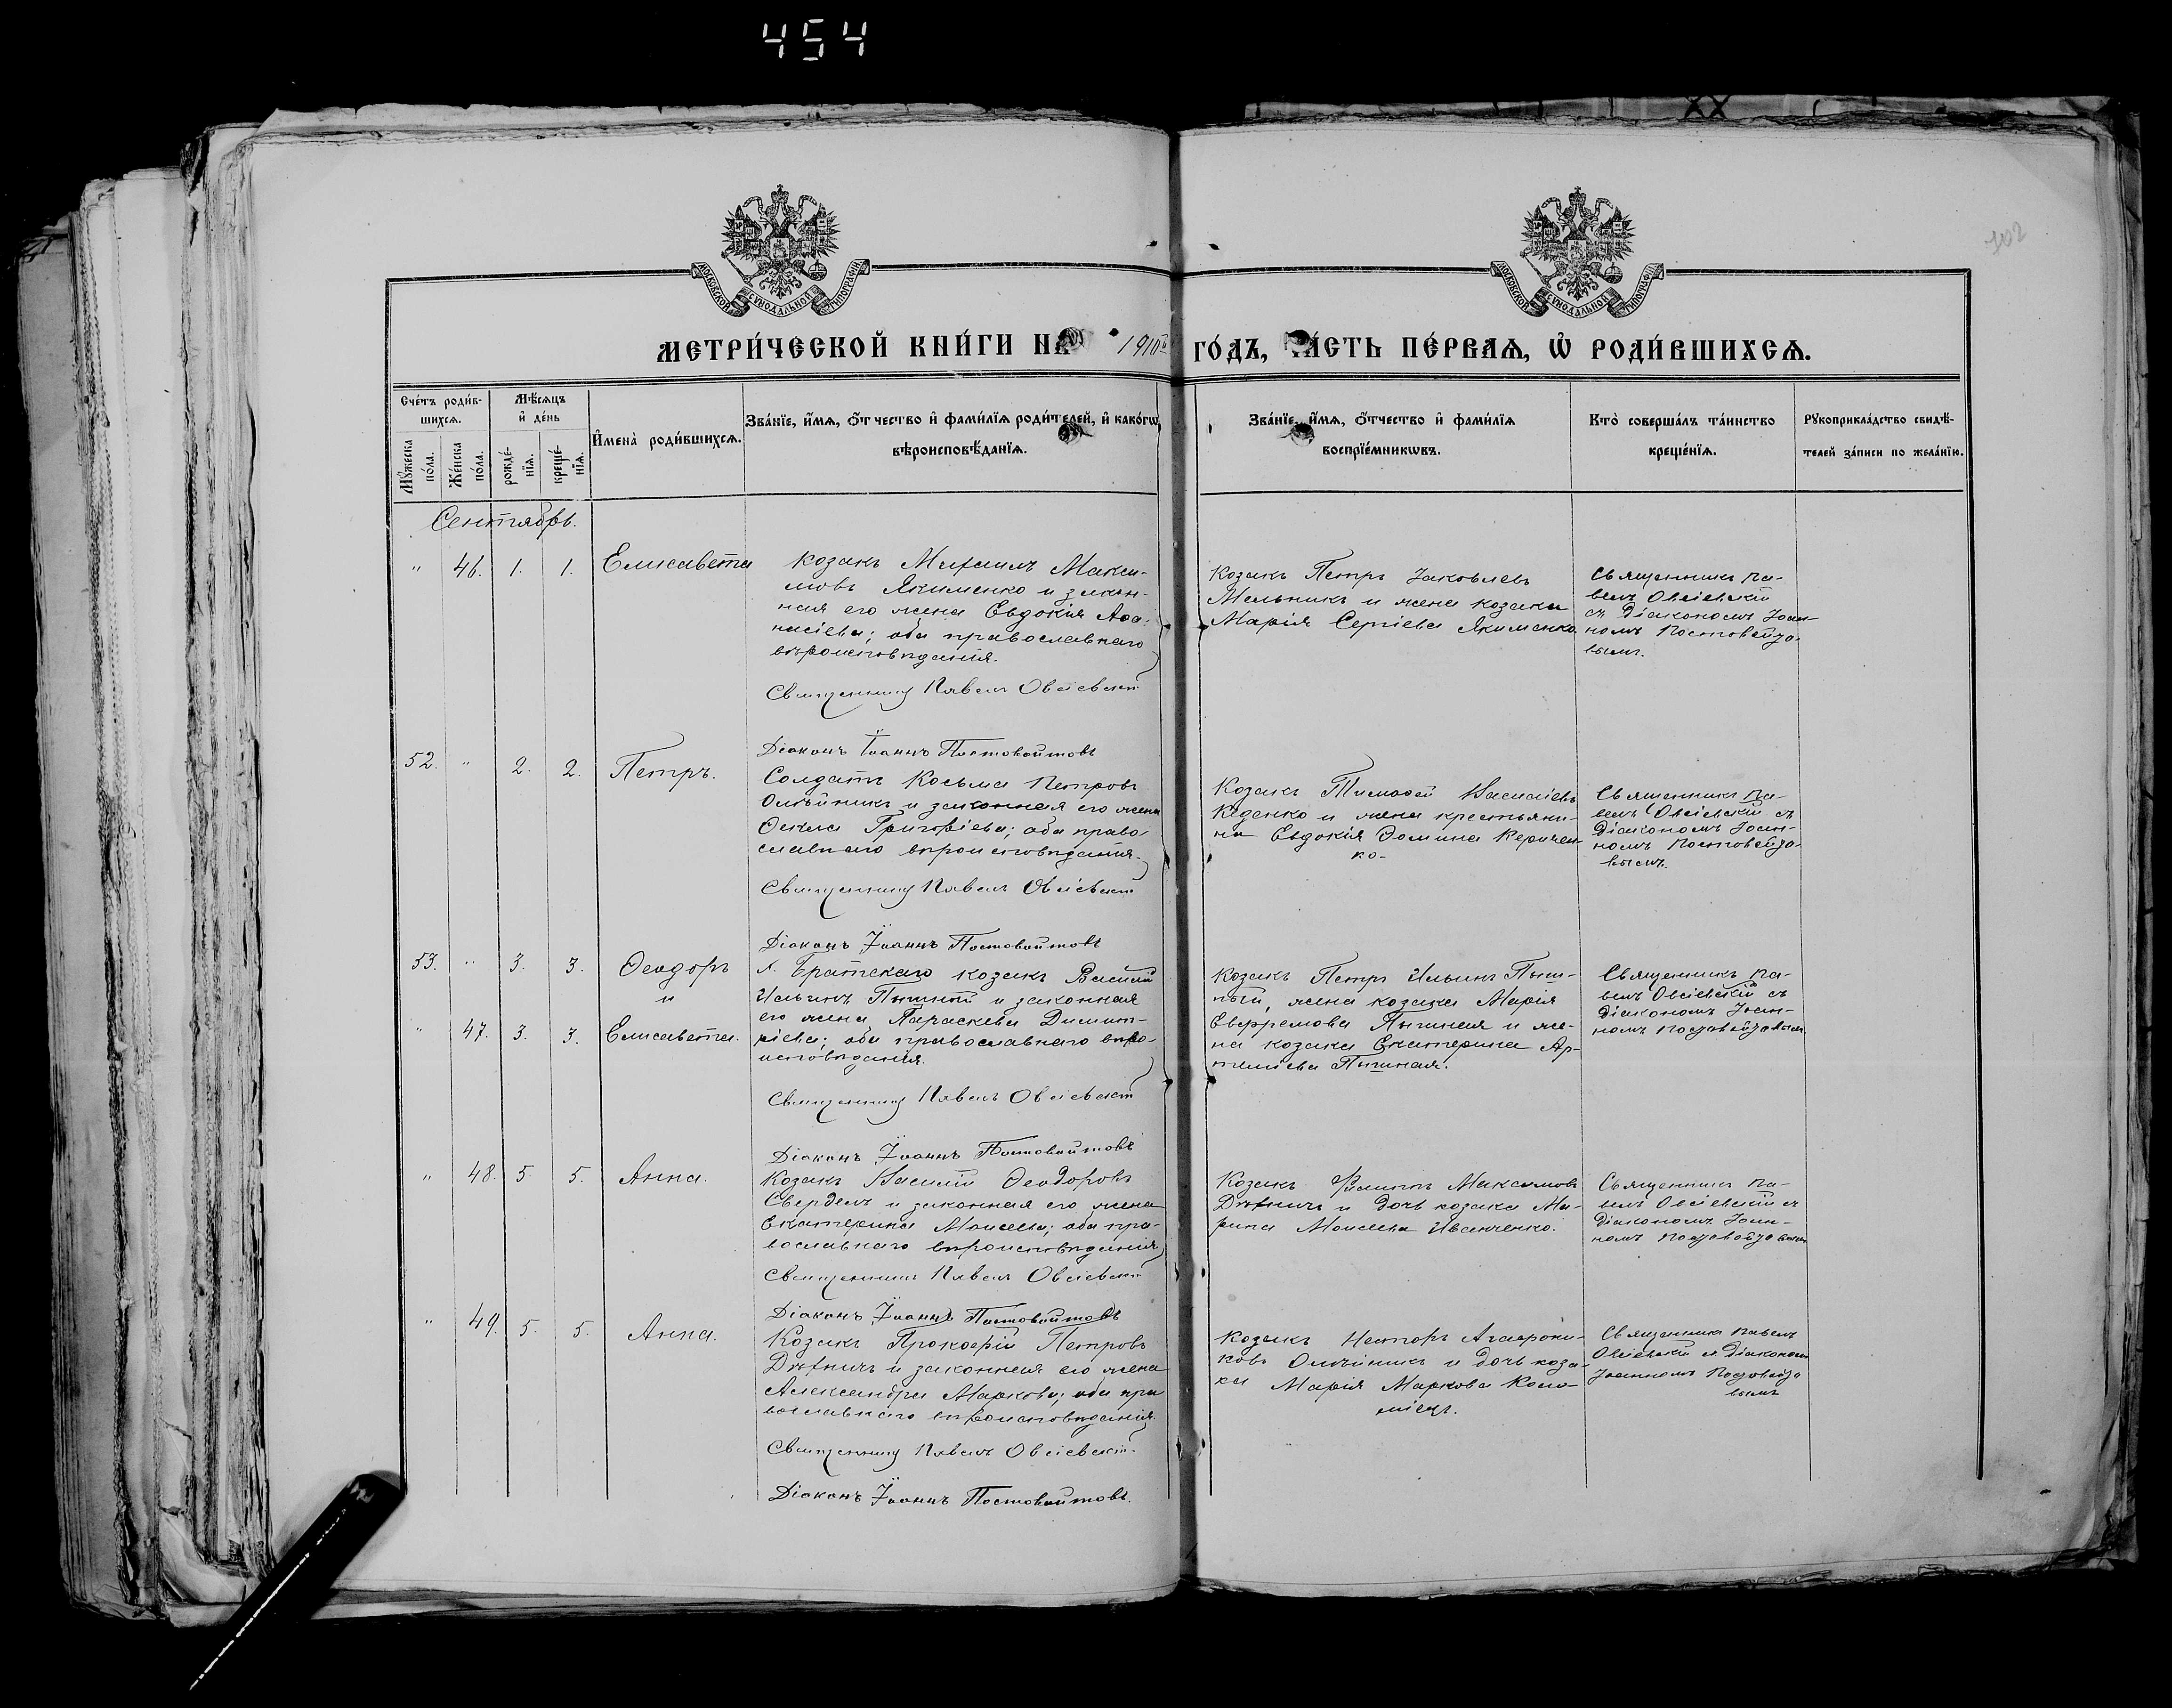 454
102
МОСКОВСКОЙ СѴНОДАЛЬНОЙ ТИПОГРАФІИ
МОСКОВСКОЙ СѴНОДАЛЬНОЙ ТИПОГРАФІИ
МЕТРИ́ЧЕСКОЙ КНИ́ГИ НА 1910й ГО́ДЪ, ЧА́СТЬ ПЕ́РВАѦ, Ѡ҆ РОДИ́ВШИХСѦ.
Сче́тъ роди́в-
шихсѧ.
Мꙋ́жеска
по́ла.
Же́нска
по́ла.
Мѣ́сѧцъ
и҆ де́нь
рожде́-
нїѧ.
креще́-
нїѧ.
И҆мена̀ роди́вшихсѧ.
Зва́нїе, и҆́мѧ, ѻ҆́тчество и҆ фами́лїѧ роди́телей, и҆ како́гѡ
вѣроисповѣ́данїѧ.
Зва́нїе, и҆́мѧ, ѻ҆́тчество и҆ фами́лїѧ
воспрїе́мникѡвъ.
Кто̀ соверша́лъ та́инство
креще́нїѧ.
Рꙋкоприкла́дство свидѣ́-
телей за́писи по жела́нїю.
Сентябрь.
" 46. 1. 1. Елисавета
Козакъ Михаилъ Макси-
мовъ Якименко и закон-
ная его жена Евдокія Аѳа-
насіева; оба православнаго
вѣроисповѣданія.
Священникъ Павелъ Овсіевскій
Діаконъ Іоаннъ Постовойтовъ
Козакъ Петръ Іаковлевъ
Мельникъ и жена козака
Марія Сергіева Якименко
Священникъ Па-
велъ Овсіевскій
съ Діакономъ Іоан-
номъ Постовойто-
вымъ.
52. " 2. 2. Петръ.
Солдатъ Косьма Петровъ
Олѣйникъ и законная его жена
Ѳекла Григоріева; оба право-
славнаго вѣроисповѣданія.
Священникъ Павелъ Овсіевскій
Діаконъ Іоаннъ Постовойтовъ
Козакъ Тимоѳей Василіевъ
Кеденко и жена крестьяни-
на Евдокія Ѳомина Керичен-
ко-
Священникъ Па-
велъ Овсіевскій съ
Діакономъ Іоан-
номъ Постовойто-
вымъ.
53. " 3. 3. Ѳеодоръ
и
" 47. 3. 3. Елисавета.
х. Братскаго козакъ Василій
Ильинъ Пышный и законная
его жена Параскева Димит-
ріева; оба православнаго вѣро-
исповѣданія.
Священникъ Павелъ Овсіевскій
Діаконъ Іоаннъ Постовойтовъ
Козакъ Петръ Ильинъ Пыш-
ный, жена козака Марія
Евфремова Пышная и же-
на козака Екатерина Ар-
теміева Пышная.
Священникъ Па-
велъ Овсіевскій съ
Діакономъ Іоан-
номъ Постовойтовым
" 48. 5 5. Анна.
Козакъ Василій Ѳеодоровъ
Сверделъ и законная его жена
Екатерина Моисеева; оба пра-
вославнаго вѣроисповѣданія
Священникъ Павелъ Овсіевскій
Діаконъ Іоаннъ Постовойтовъ
Козакъ Филиппъ Максимовъ
Дѣхничъ и дочь козака Ма-
рина Моисеева Иваниченко.
Священникъ Па-
велъ Овсіевскій съ
Діакономъ Іоан-
номъ Постовойтовым
" 49. 5. 5. Анна.
Козакъ Прокофій Петровъ
Дѣхничъ и законная его жена
Александра Маркова; оба пра
вославнаго вѣроисповѣданія.
Священникъ Павелъ Овсіевскій.
Діаконъ Іоаннъ Постовойтовъ.
Козакъ Несторъ Агафони-
ковъ Олѣйникъ и дочь коза-
ка Марія Маркова Коло-
міецъ.
Священникъ Павелъ
Овсіевскій съ Діакономъ
Іоанномъ Постовойто
вымъ